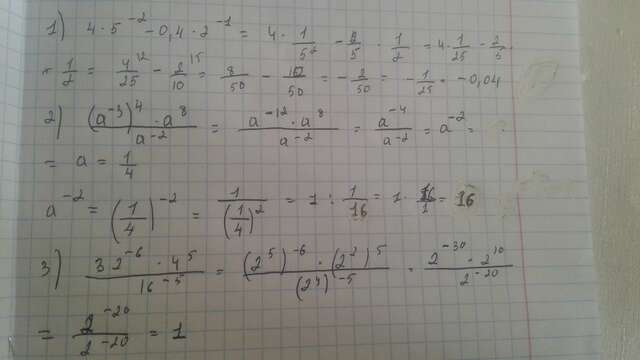 1) 4 · 5⁻² − 0,4 · 2⁻¹ = 4 · 1/5² − 2/5 · 1/2 = 4 · 1/25 − 2/5 ·
· 1/2 = 4/25 − 2/10 = 8/50 − 10/50 = − 2/50 = − 1/25 = −0,04
2) (a⁻³)⁴ · a⁸ / a⁻² = a⁻¹² · a⁸ / a⁻² = a⁻⁴ / a⁻² = a⁻² =
= a = 1/4
a⁻² = (1/4)⁻² = 1/(1/4)² = 1 : 1/16 = 1 · 16/1 = 16
3) 32⁻⁶ · 4⁵ / 16⁻⁵ = (2⁵)⁻⁶ · (2²)⁵ / (2⁴)⁻⁵ = 2⁻³⁰ · 2¹⁰ / 2⁻²⁰
= 2⁻²⁰ / 2⁻²⁰ = 1